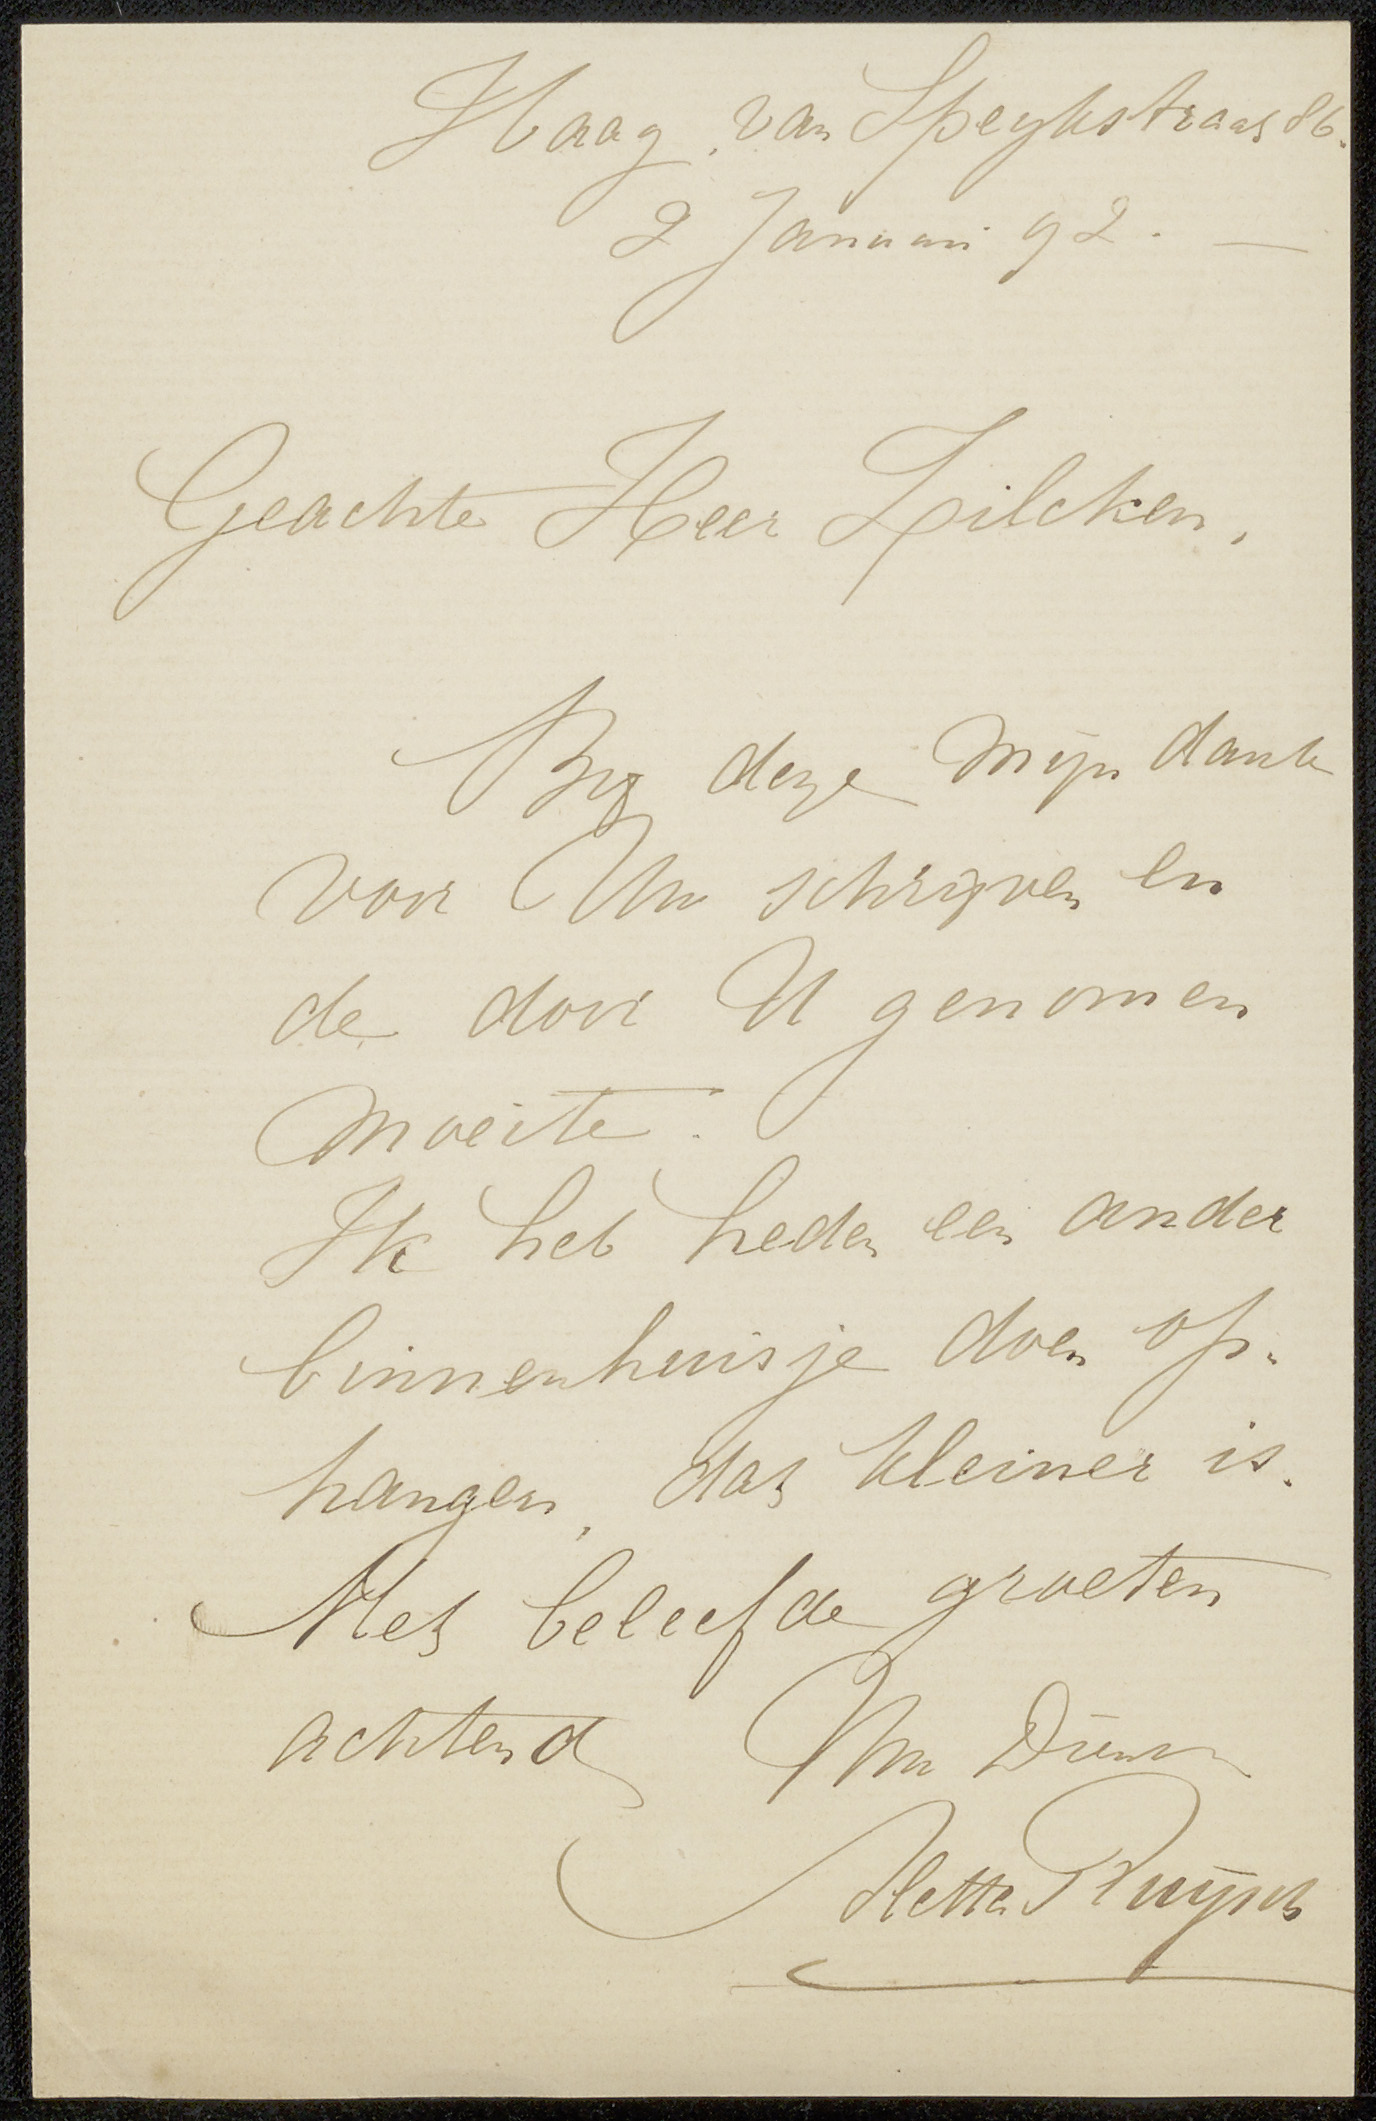 Haag, van Speykstraat 86.
2 Januari 92. —
Geachte Heer Zilcken,
By deze mijn dank
voor Uw schrijven en
de door U genomen
moeite.
Ik heb heden een ander
binnenhuisje doen op-
hangen, dat kleiner is.
Met beleefde groeten
achtend Uw Dienr
Hetta Ruysch